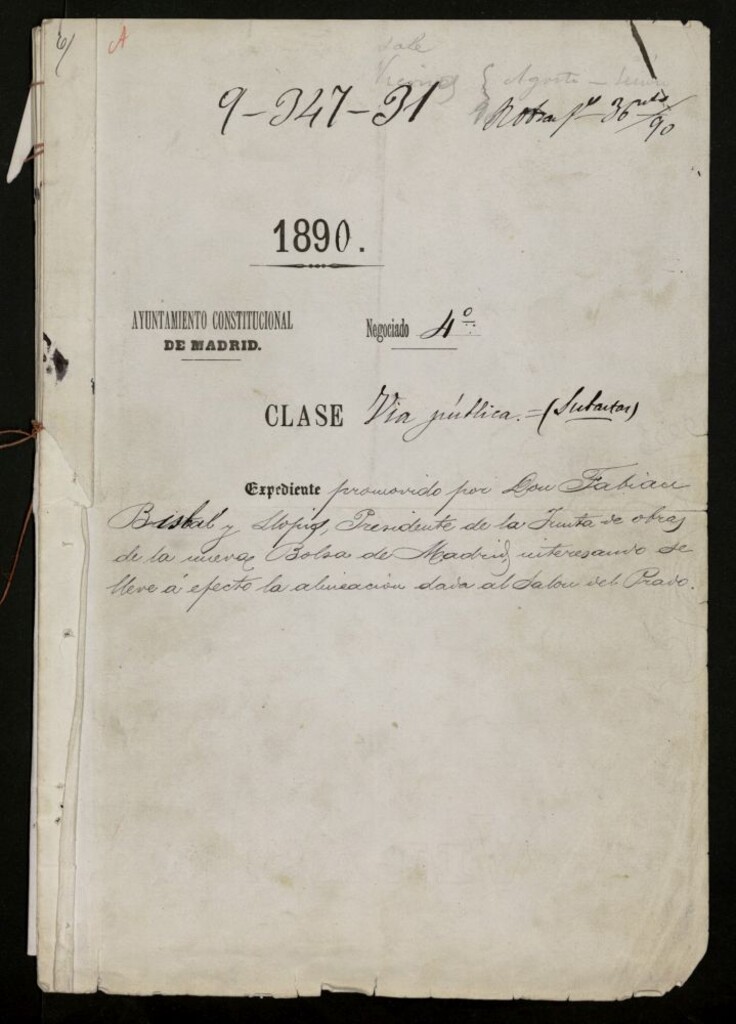 A
sale
9-347-31
36
90
1890.
AYUNTAMIENTO CONSTITUCIONAL
DE MADRID.
Negociado 4º
CLASE Via pública.=(Subastas)
Expediente promovido por Don Fabian
y Llopis, Presidente de la Junta de obras
de la nueva Bolsa de Madrid, interesando se
lleve á efecto la alineación dada al Salon del Prado.